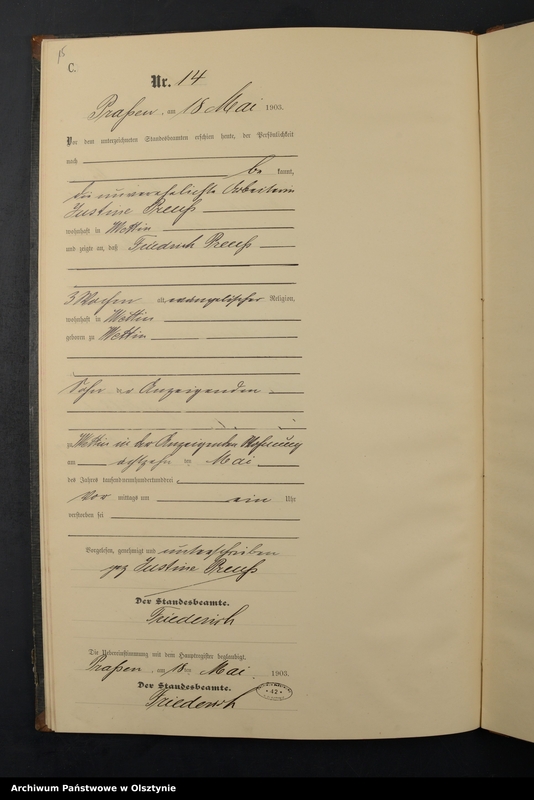 15
C.
Nr. 14
Praßen, am 18 Mai 1903.
Vor dem unterzeichneten Standesbeamten erschien heute, der Persönlichkeit
nach
be kannt,
die unverehelichte Arbeiterin
Justine Preuß
wohnhaft in Wettin
und zeigte an, daß Friedrich Preuß
3 Wochen alt, evangelischer Religion,
wohnhaft in Wettin
geboren zu Wettin
Sohn der Anzeigenden
zu Wettin in der Anzeigenden Wohnung
am achtzehn ten Mai
des Jahres tausendneunhundertunddrei
Vor mittags um ein Uhr
verstorben sei
Vorgelesen, genehmigt und unterschrieben
gez Justine Preuß
Der Standesbeamte.
Friederich
Die Uebereinstimmung mit dem Hauptregister beglaubigt.
Praßen, am 18ten Mai 1903.
Der Standesbeamte.
Friederich
* 42 *
Archiwum Państwowe w Olsztynie